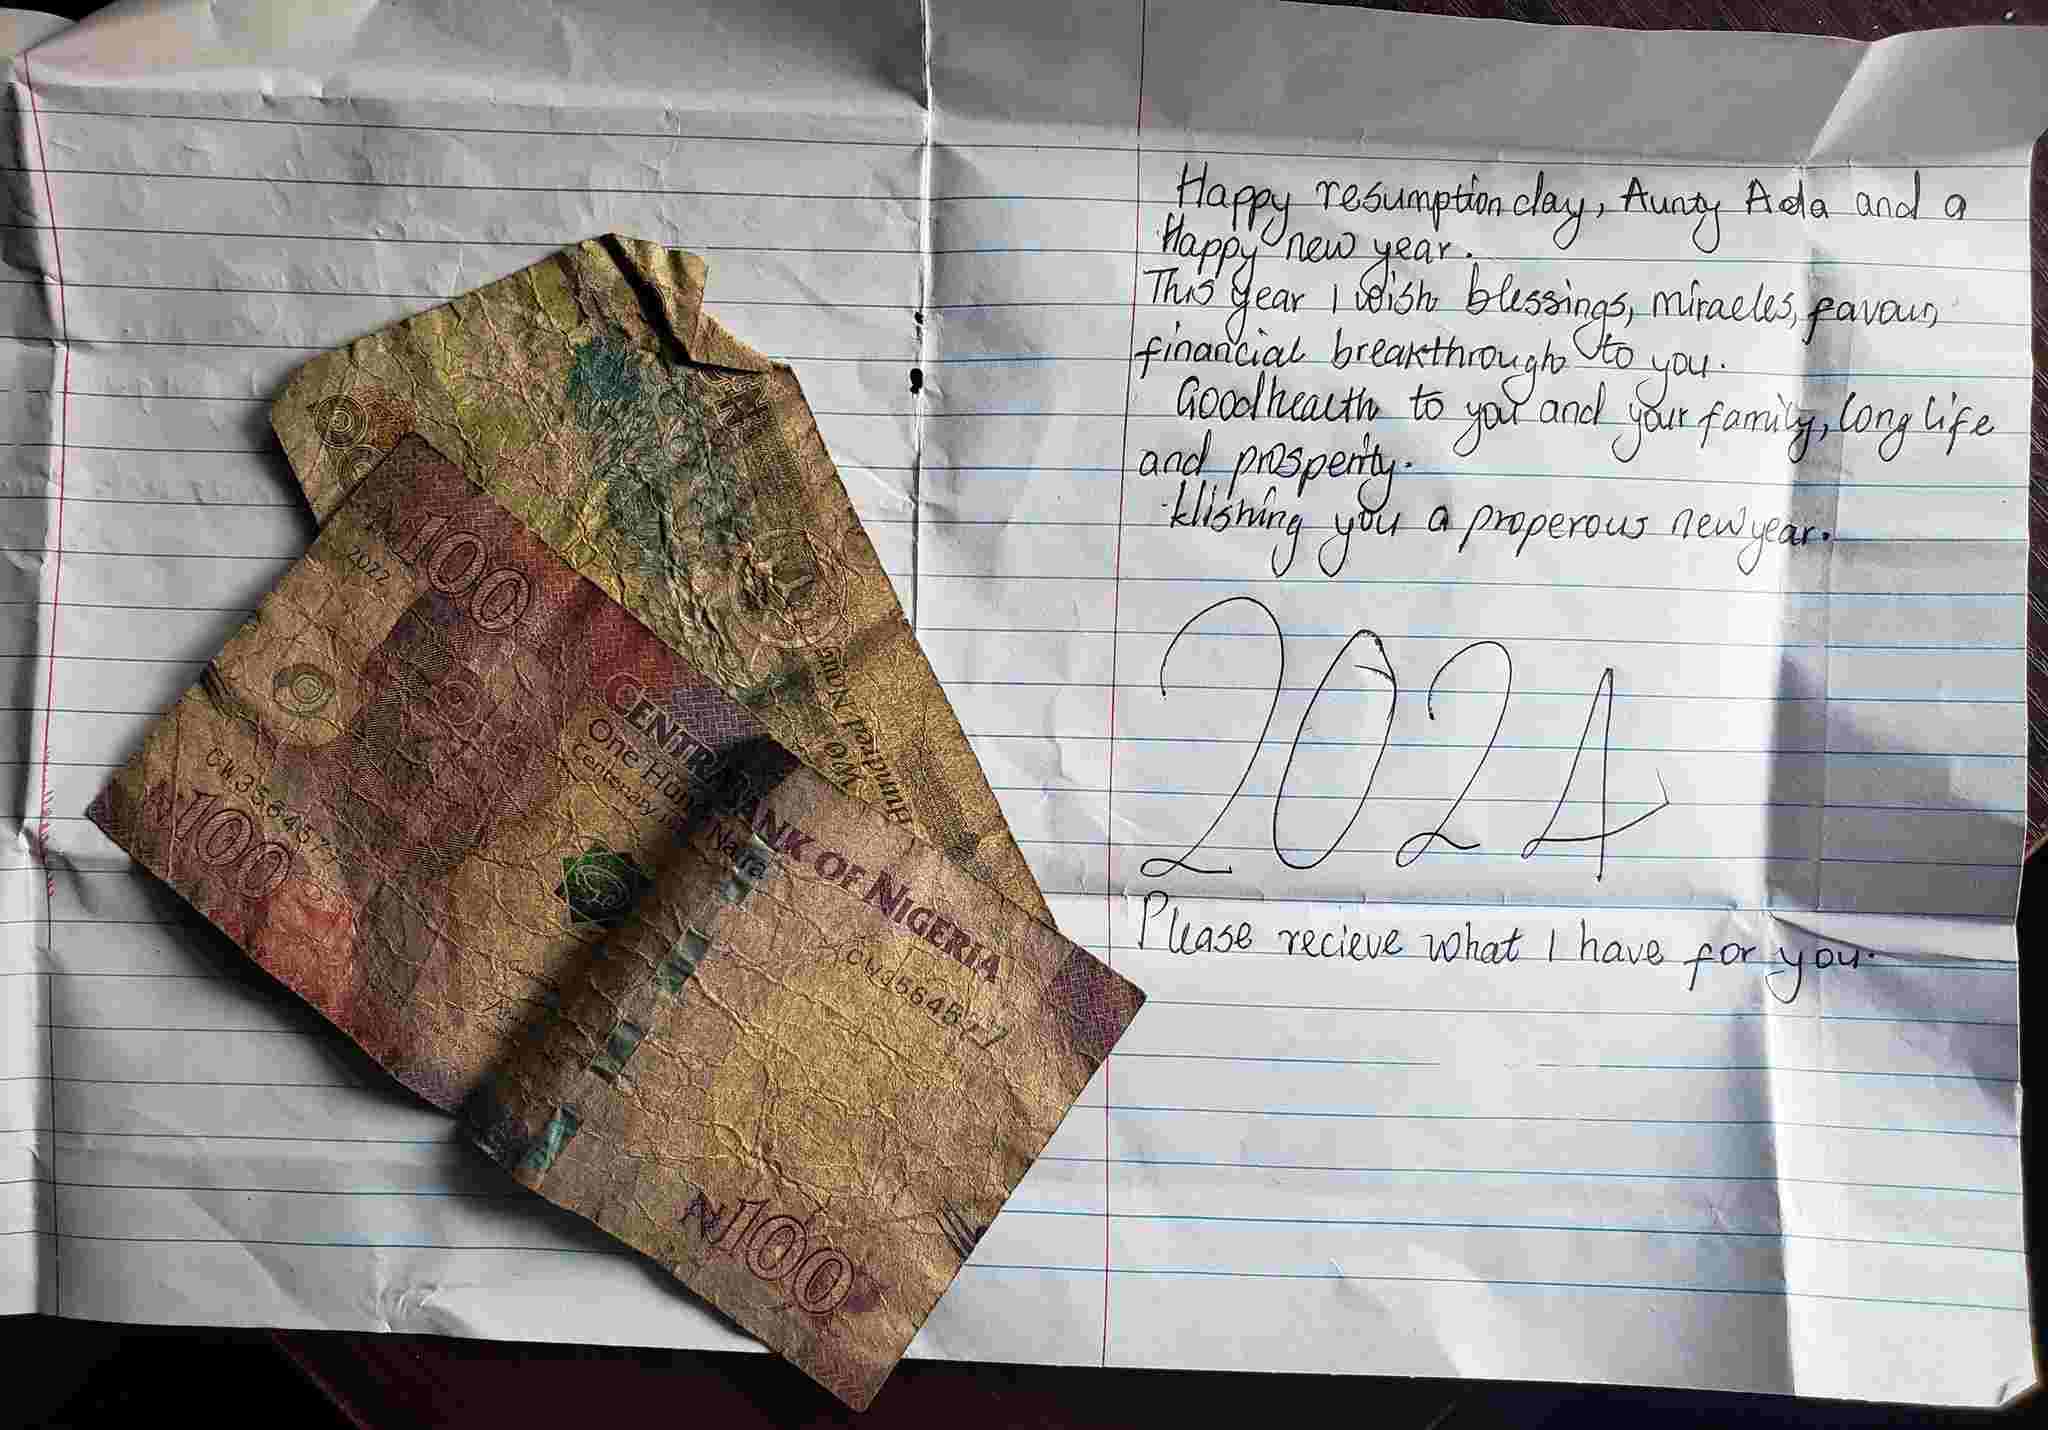 Happy resumption day, Aunty Ada and a
Happy new year.
This year I wish blessings, miracles, favour,
financial breakthrough to you.
Good health to you and your family, long life
and prosperity.
Wishing you a properous new year.
2024
Please recieve what I have for you.
100
2022
CENTRAL BANK OF NIGERIA
One Hundred Naira
Centenary
₦100
₦100
Two
Hundred Naira